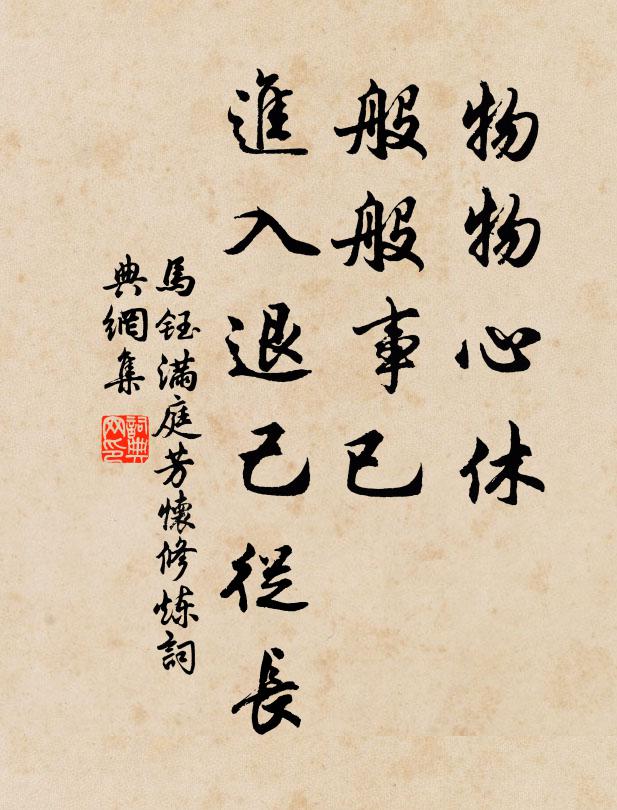 物物心休
般般事已
進入退己從長
馬鈺滿庭芳懷修炼詞
典網集
詞典网印